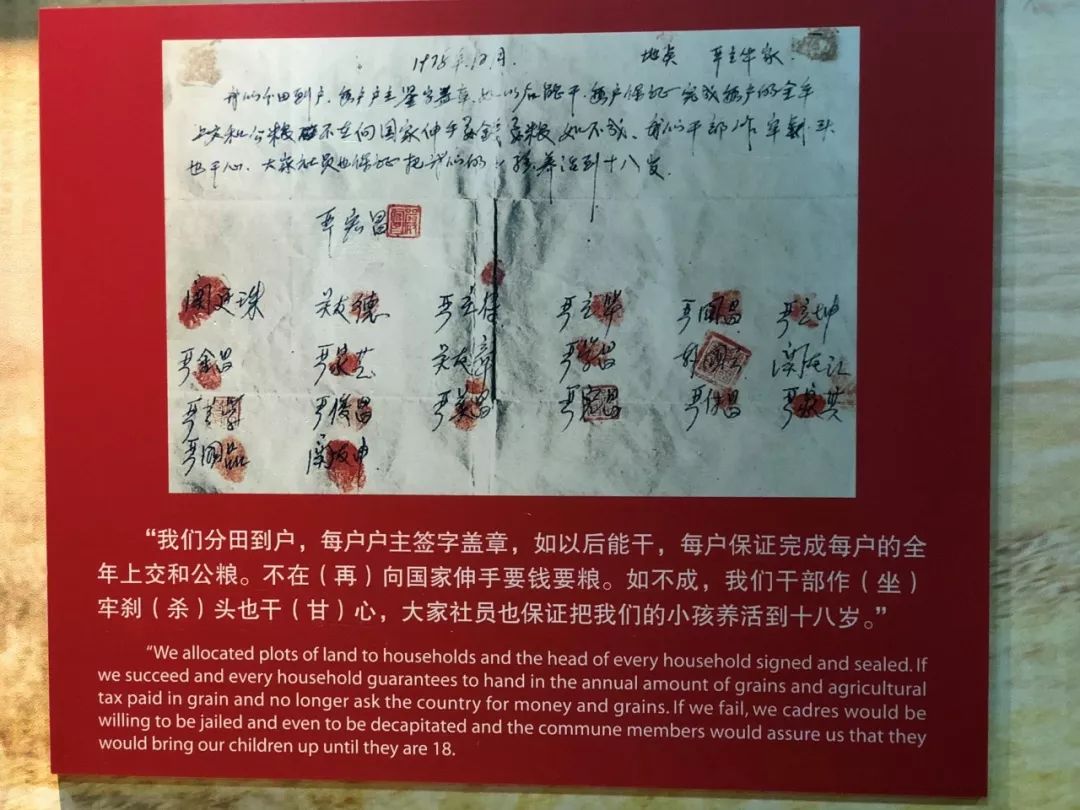 1978年12月. 地点 严立华家
我们分田到户,每户户主签字盖章,如以后能干,每户保证完成每户的全年
上交和公粮 不在向国家伸手要钱要粮 如不成,我们干部作牢刹头
也干心,大家社员也保证把我们的小孩养活到十八岁.
严宏昌
关廷珠 关友德 严立符 严立华 严国昌 严立坤
严金昌 严家芝 关友章 严学昌 韩国云 关友江
严立学 严俊昌 严美昌 严宏昌 严付昌 严家其
严国品 关友申
“我们分田到户，每户户主签字盖章，如以后能干，每户保证完成每户的全
年上交和公粮。不在（再）向国家伸手要钱要粮。如不成，我们干部作（坐）
牢刹（杀）头也干（甘）心，大家社员也保证把我们的小孩养活到十八岁。”
“We allocated plots of land to households and the head of every household signed and sealed. If
we succeed and every household guarantees to hand in the annual amount of grains and agricultural
tax paid in grain and no longer ask the country for money and grains. If we fail, we cadres would be
willing to be jailed and even to be decapitated and the commune members would assure us that they
would bring our children up until they are 18.